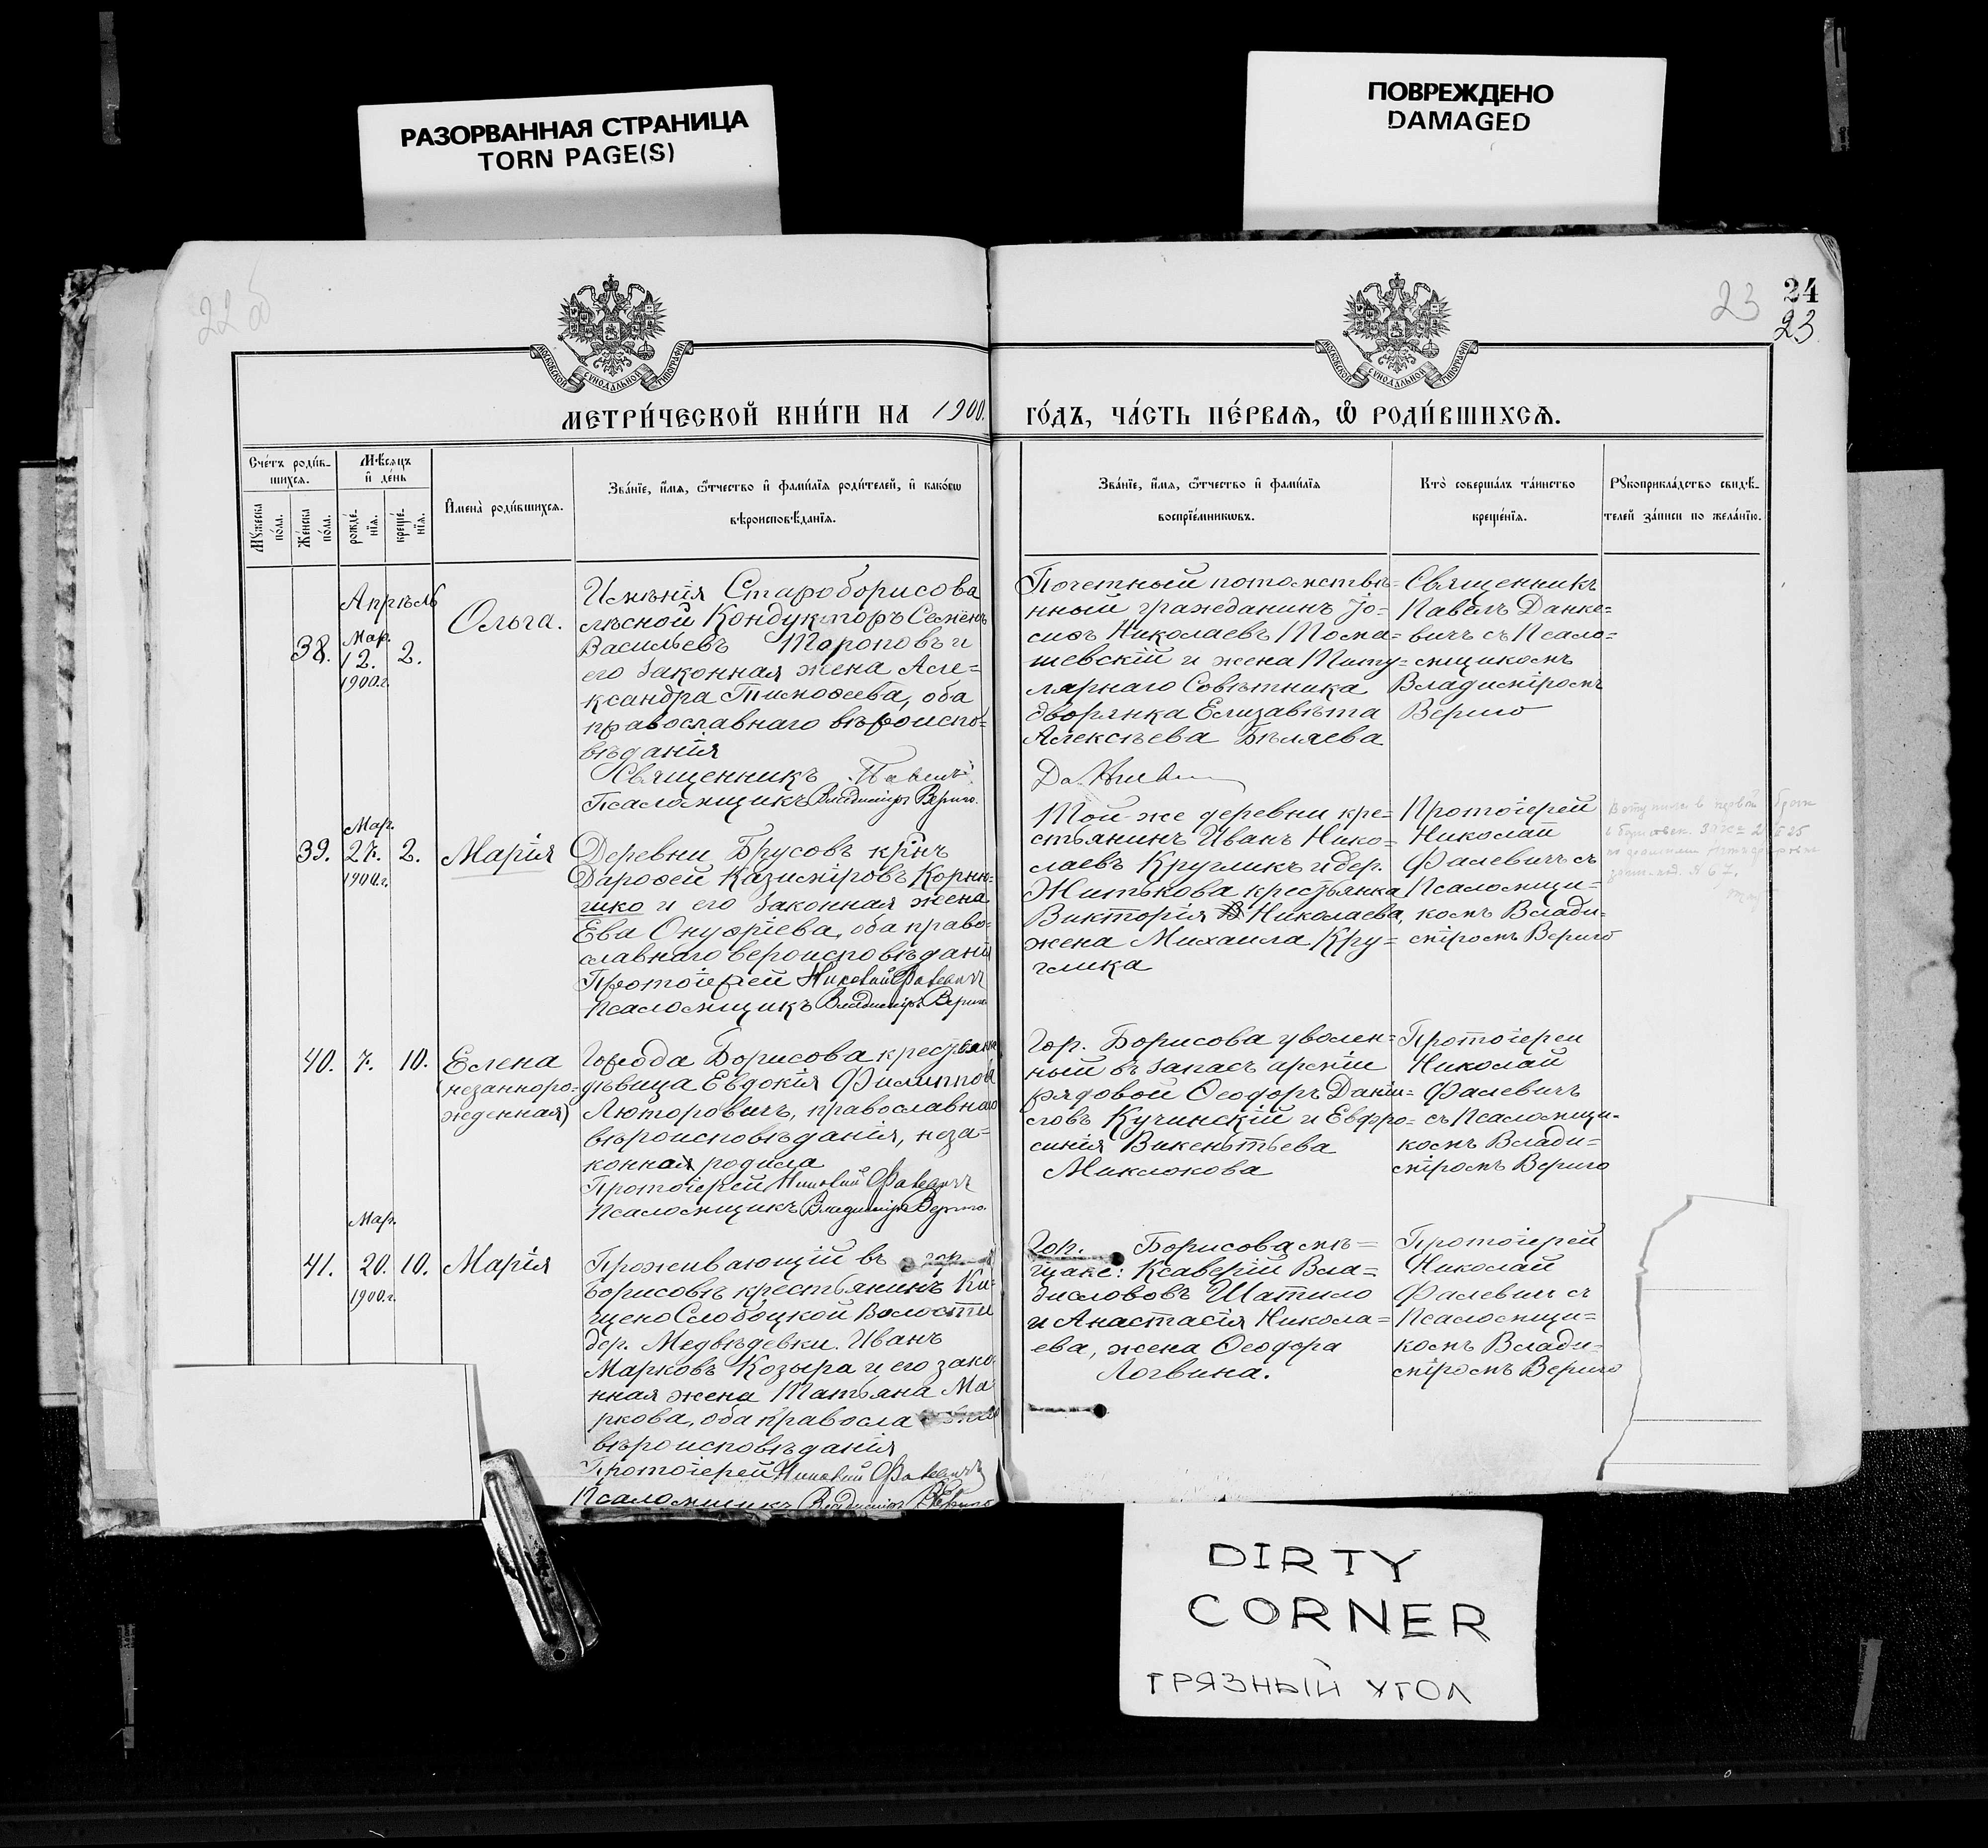 РАЗОРВАННАЯ СТРАНИЦА
TORN PAGE(S)
ПОВРЕЖДЕНО
DAMAGED
22 об
23
24
23
МОСКОВСКОЙ СѴНОДАЛЬНОЙ ТИПОГРАФІИ
МОСКОВСКОЙ СѴНОДАЛЬНОЙ ТИПОГРАФІИ
МЕТРИ́ЧЕСКОЙ КНИ́ГИ НА 1900.
ГО́ДЪ, ЧА́СТЬ ПЕ́РВАѦ, Ѡ РОДИ́ВШИХСѦ.
Сче́тъ роди́в-
шихся.
Мѣ́сяцъ
и҆ де́нь
Мꙋ́жеска
по́ла.
Же́нска
по́ла.
рожде́-
нїя.
креще́-
нїя.
И҆мена̀ роди́вшихся.
Зва́нїе, и҆́мя, ѻ҆́тчество и҆ фами́лїя роди́телей, и҆ како́гѡ
вѣроисповѣ́данїя.
Зва́нїе, и҆́мя, ѻ҆́тчество и҆ фами́лїя
воспрїе́мникѡвъ.
Кто̀ соверша́лъ та́инство
креще́нїя.
Рꙋкоприкла́дство свидѣ́-
телей за́писи по жела́нїю.
Апрѣль
38.
Мар.
12.
1900 г.
2.
Ольга.
Имѣнія Староборисова
лѣсной Кондукторъ Семенъ
Васильевъ Тороповъ и
его законная жена Але=
ксандра Тимофеева, оба
православнаго вѣроиспо=
вѣданія
Священникъ Павелъ
Псаломщикъ Владиміръ Вериго.
Почетный потомстве=
нный гражданинъ Іо=
сифъ Николаевъ Тома=
шевскій и жена Титу=
лярнаго Совѣтника
дворянка Елизавѣта
Алексѣева Бѣляева
Священникъ
Павелъ Данке=
вичъ съ Псало=
мщикомъ
Владиміромъ
Вериго
39.
Мар.
27.
1900 г.
2.
Марія
Деревни Брусовъ кр̃нъ
Дарофей Казиміровъ Корню=
шко и его законная жена
Ева Онуфріева, оба право=
славнаго вероисповѣданія
Протоіерей Николай Фалевичъ
Псаломщикъ Владиміръ Вериго
Той-же деревни кре=
стьянинъ Иванъ Нико=
лаевъ Кругликъ и дер.
Житькова крестьянка
Викторія Николаева,
жена Михаила Кру=
глика
Протоіерей
Николай
Фалевичъ съ
Псаломщи=
комъ Влади=
міромъ Вериго
40.
7.
10.
Елена
(незаконоро=
жденная)
Города Борисова крестьянка
дѣвица Евдокія Филиппова
Люторовичъ, православнаго
вѣроисповѣданія, неза=
конная родила
Протоіерей Николай Фалевичъ
Псаломщикъ Владиміръ Вериго.
Гор. Борисова уволен=
ный въ запасъ арміи
рядовой Ѳеодоръ Дани=
ловъ Кучинскій и Евфро=
синія Викентьева
Миклюкова
Протоіереи
Николай
Фалевичъ
съ Псаломщи=
комъ Влади=
міромъ Вериго
41.
Мар.
20.
1900 г.
10.
Марія
Проживающій въ гор.
Борисовѣ крестьянинъ Ки=
щено Слободской Волости
дер. Медвѣдевки. Иванъ
Марковъ Козыра и его зако
нная жена Татьяна Ма
ркова, оба правосла
вѣроисповѣданія
Протоіерей Николай Фалевичъ
Псаломщикъ Владиміръ Вериго
Гор. Борисова мѣ=
щане: Ксаверій Вла=
диславовъ Шатило
и Анастасія Никола=
ева, жена Ѳеодора
Логвина.
Протоіерей
Николай
Фалевичъ съ
Псаломщи=
комъ Влади=
міромъ Вериго
DIRTY
CORNER
ГРЯЗНЫЙ УГОЛ